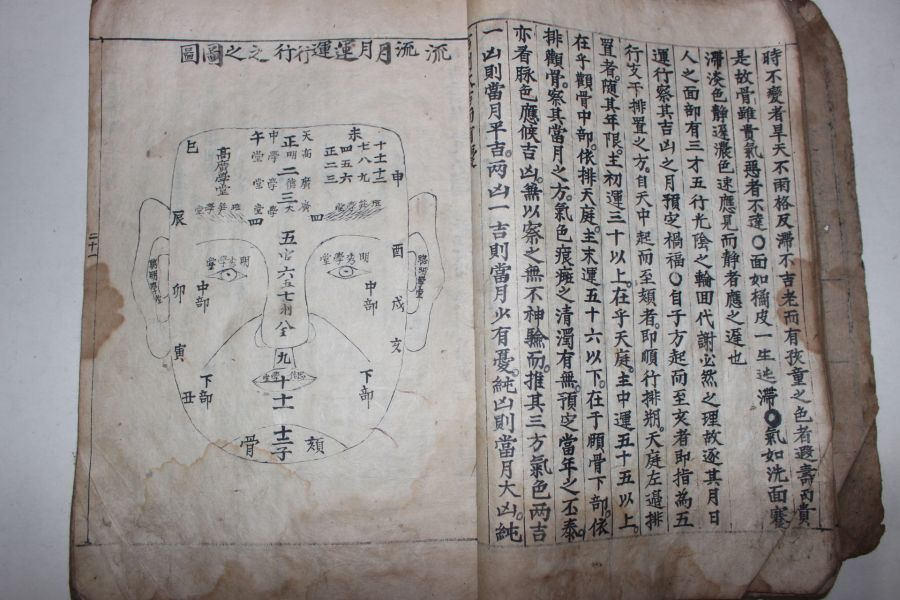 時不變者旱天不雨格反滯不吉老而有孩童之色者遐壽丙貴
是故骨雖貴氣惡者不達〇面如橘皮一生迍滯〇氣如洗面蹇
滯淡色靜遲濃色速應見而靜者應之遲也
人之面部有三才五行光陰之輪回代謝必然之理故逐其月日
運行察其吉凶之月預定禍福〇自子方起而至亥者即指為五
行支干排置之方自天中起而至頦者即順行排朔天庭左邊排
置者隨其年限主初運三十以上在乎天庭主中運五十五以上
在乎觀骨中部依排天庭主末運五十六以下在于頤骨下部依
排觀骨察其當月之方氣色痕瘢之清濁有無預定當年之丕泰
亦看脉色應候吉凶無以察之無不神驗而推其三方氣色兩吉
一凶則當月平吉兩凶一吉則當月少有憂純凶則當月大凶純
流流月月運運行行之之圖圖
未
十十一十二
七八九
四五六
正二三
申
天中
午
高明學堂
正
高廣學堂
二
三
四
四
巳
辰
班笋學堂
班笋學堂
五
六
七
九
十
十一
十二
子
明秀學堂
明秀學堂
聰明學堂
聰明學堂
酉
戌
亥
卯
寅
丑
中部
中部
下部
下部
頦骨
二十一